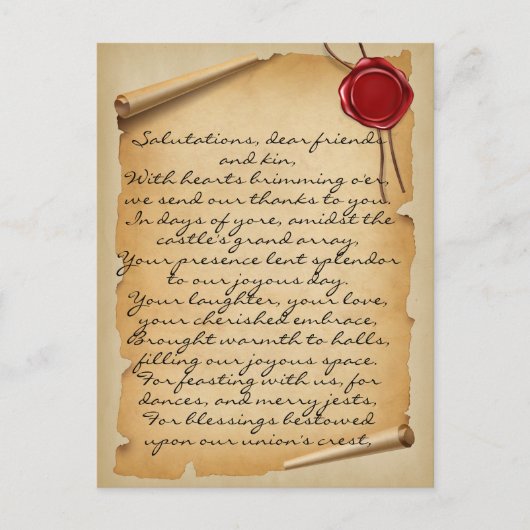 Salutations, dear friends
and kin,
With hearts brimming o'er,
we send our thanks to you.
In days of yore, amidst the
castle's grand array,
Your presence lent splendor
to our joyous day.
Your laughter, your love,
your cherished embrace,
Brought warmth to halls,
filling our joyous space.
For feasting with us, for
dances, and merry jests,
For blessings bestowed
upon our union's crest,